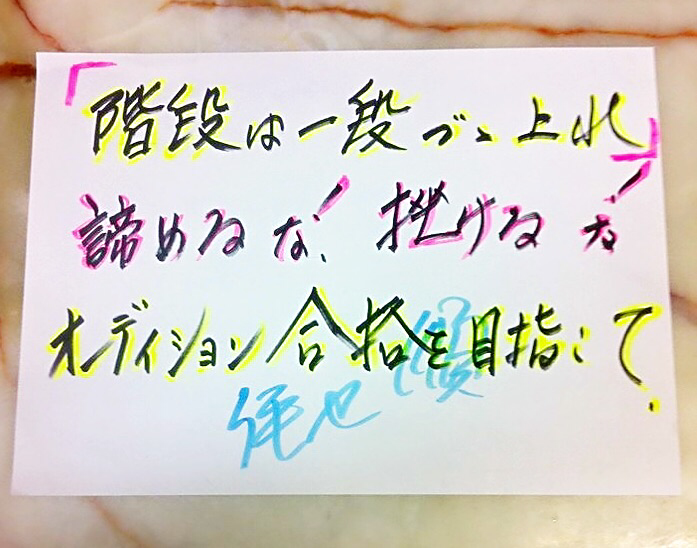 「階段は一段づゝ上れ」
諦めるな！挫けるな！
オーディション合格を目指して.